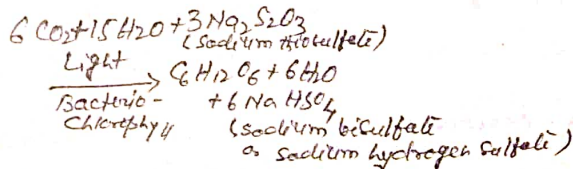 6 CO2+15H2O+3Na2S2O3
(Sodium thiosulfate)
Light
Bacterio-
Chlorophyll
→ C6H12O6+6H2O
+6NaHSO4
(sodium bisulfate
or sodium hydrogen sulfate)